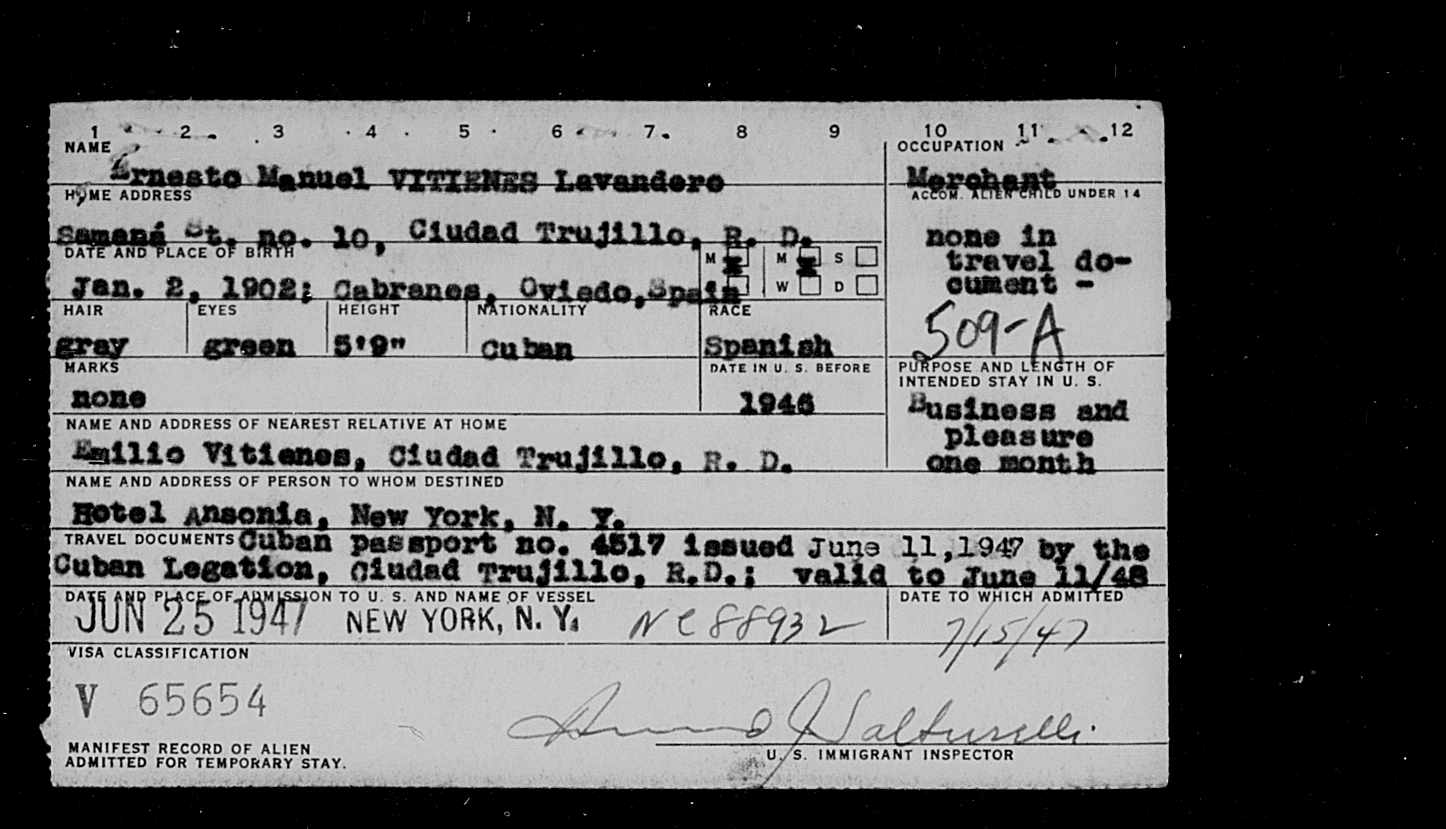 1 2 3 4 5 6 7 8 9 10 11 12
NAME
Ernesto Manuel VITIENES Lavandero
OCCUPATION
Merchant
HOME ADDRESS
Samaná St. no. 10, Ciudad Trujillo, R. D.
ACCOM. ALIEN CHILD UNDER 14
none in
travel do-
cument -
509-A
DATE AND PLACE OF BIRTH
Jan. 2, 1902; Cabranes, Oviedo, Spain
M x M x S
W D
HAIR EYES HEIGHT NATIONALITY RACE
gray green 5'9" Cuban Spanish
MARKS
none
DATE IN U. S. BEFORE
1946
PURPOSE AND LENGTH OF
INTENDED STAY IN U. S.
Business and
pleasure
one month
NAME AND ADDRESS OF NEAREST RELATIVE AT HOME
Emilio Vitienes, Ciudad Trujillo, R. D.
NAME AND ADDRESS OF PERSON TO WHOM DESTINED
Hotel Ansonia, New York, N. Y.
TRAVEL DOCUMENTS Cuban passport no. 4517 issued June 11, 1947 by the
Cuban Legation, Ciudad Trujillo, R.D.; valid to June 11/48
DATE AND PLACE OF ADMISSION TO U. S. AND NAME OF VESSEL
JUN 25 1947 NEW YORK, N. Y. NC 88932
DATE TO WHICH ADMITTED
7/15/47
VISA CLASSIFICATION
V 65654
U. S. IMMIGRANT INSPECTOR
MANIFEST RECORD OF ALIEN
ADMITTED FOR TEMPORARY STAY.